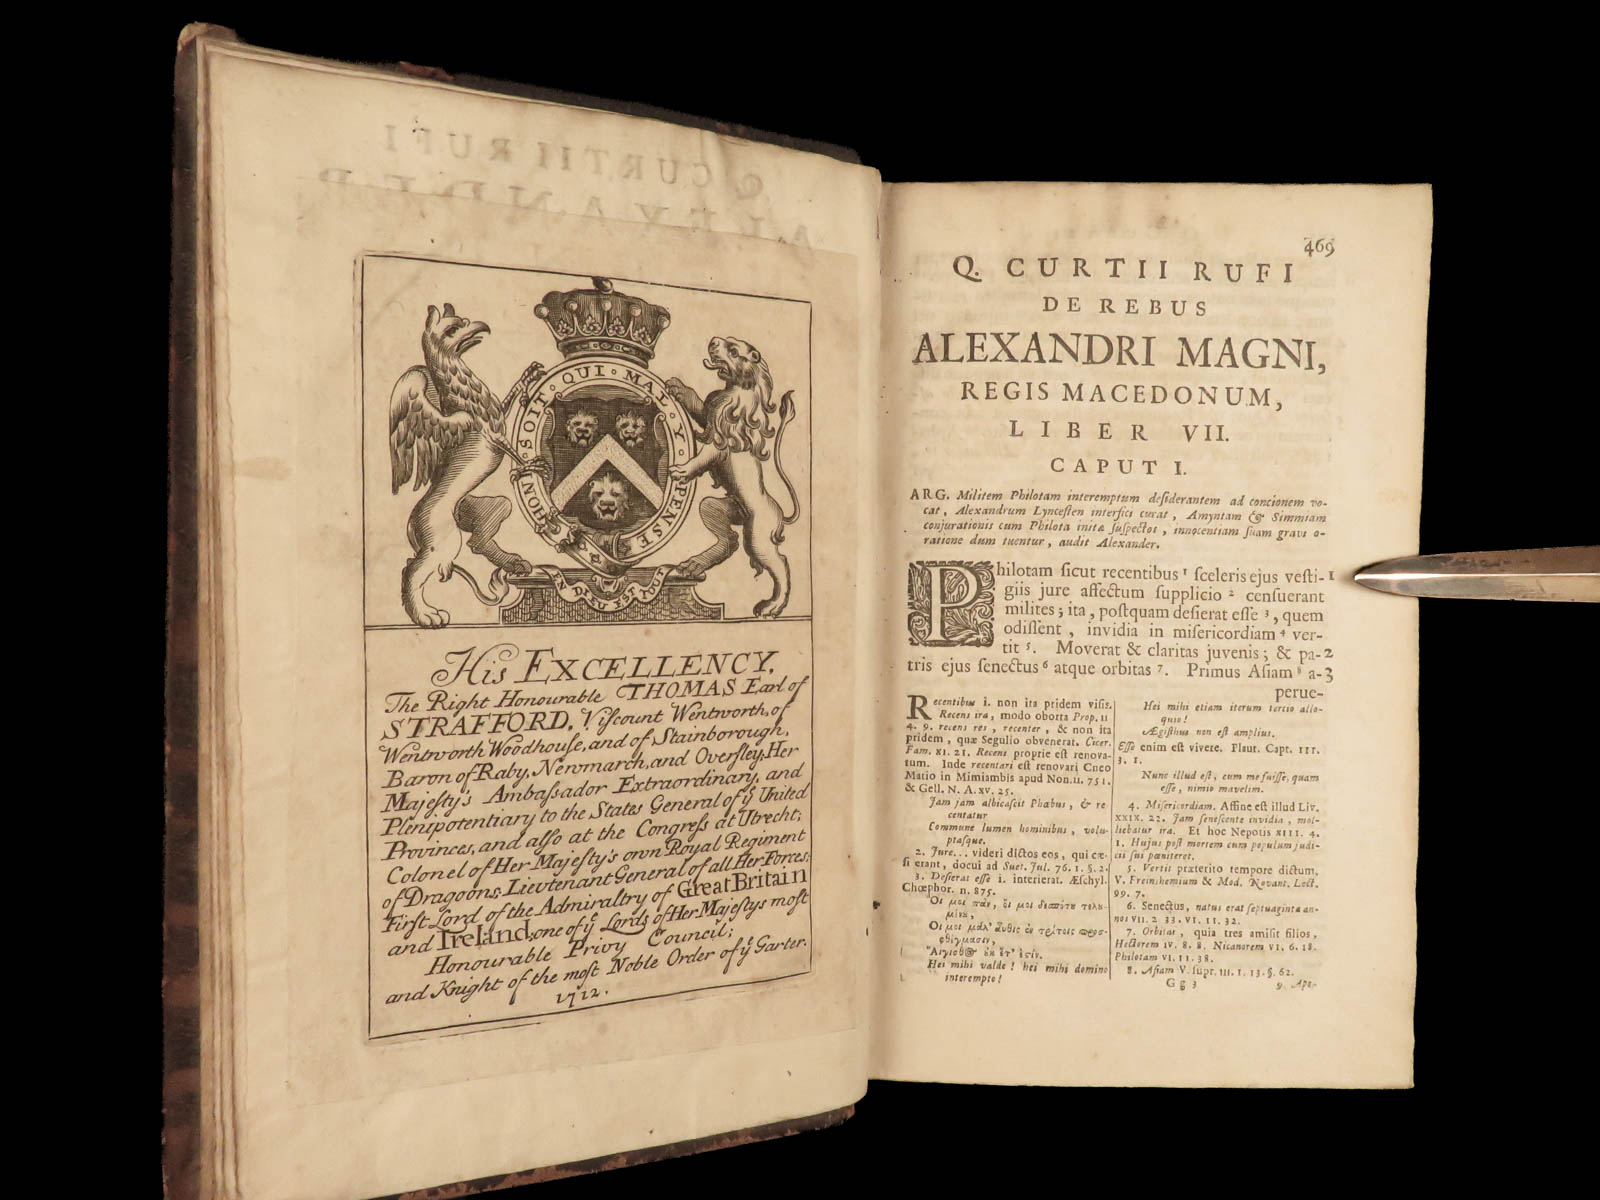 HONI · SOIT · QUI · MAL · Y · PENSE
EN DIEU EST TOUT
His EXCELLENCY,
The Right Honourable THOMAS Earl of
STRAFFORD, Viſcount Wentworth, of
Wentworth Woodhouſe, and of Stainborough,
Baron of Raby, Newmarch, and Overſley, Her
Majeſty's Ambaſsador Extraordinary, and
Plenipotentiary to the States General of yᵉ United
Provinces, and alſo at the Congreſs at Utrecht;
Colonel of Her Majeſty's own Royal Regiment
of Dragoons; Lieutenant General of all Her Forces;
Firſt Lord of the Admiraltry of Great Britain
and Ireland; one of yᵉ Lords of Her Majeſtys moſt
Honourable Privy Council;
and Knight of the moſt Noble Order of yᵉ Garter.
1712.
469
Q. CURTII RUFI
DE REBUS
ALEXANDRI MAGNI,
REGIS MACEDONUM,
LIBER VII.
CAPUT I.
ARG. Militem Philotam interemptum deſiderantem ad concionem vo-
cat, Alexandrum Lynceſten interfici curat, Amyntam & Simmiam
conjurationis cum Philota initæ ſuſpectos, innocentiam ſuam gravi o-
ratione dum tuentur, audit Alexander.
Philotam ſicut recentibus ¹ ſceleris ejus veſti- 1
giis jure affectum ſupplicio ² cenſuerant
milites; ita, poſtquam deſierat eſſe ³, quem
odiſſent, invidia in miſericordiam ⁴ ver-
tit ⁵. Moverat & claritas juvenis; & pa- 2
tris ejus ſenectus ⁶ atque orbitas ⁷. Primus Aſiam ⁸ a- 3
perue-
Recentibus i. non ita pridem viſis.
Recens ira, modo oborta Prop. II
4. 9. recens res, recenter, & non ita
pridem, quæ Segulio obvenerat. Cicer.
Fam. XI. 21. Recens proprie eſt renova-
tum. Inde recentari eſt renovari Cneo
Matio in Mimiambis apud Non. II. 751.
& Gell. N. A. XV. 25.
Jam jam albicaſcit Phœbus, & re-
centatur
Commune lumen hominibus, volu-
ptaſque.
2. Jure... videri dictos eos, qui cæ-
ſi erant, docui ad Suet. Jul. 76. 1. §. 2.
3. Deſierat eſſe i. interierat. Æſchyl.
Chœphor. n. 875.
Hei mihi valde! hei mihi domino
interempto!
Hei mihi etiam iterum tertio allo-
quio!
Ægiſthus non eſt amplius.
Eſſe enim eſt vivere. Plaut. Capt. III.
3. 1.
Nunc illud eſt, cum me fuiſſe, quam
eſſe, nimio mavelim.
4. Miſericordiam. Affine eſt illud Liv.
XXIX. 22. Jam ſeneſcente invidia, mol-
liebatur ira. Et hoc Nepotis XIII. 4.
1. Hujus poſt mortem cum populum judi-
cii ſui pœniteret.
5. Vertit præterito tempore dictum,
V. Freinſhemium & Mod. Novant. Lect.
99. 7.
6. Senectus, natus erat ſeptuaginta an-
nos VII. 2 33. VI. 11. 32.
7. Orbitas, quia tres amiſit filios,
Hectorem IV. 8. 8. Nicanorem VI. 6. 18.
Philotam VI. 11. 38.
8. Aſiam V. ſupr. III. 1. 13. §. 62.
Gg 3
9. Ape-